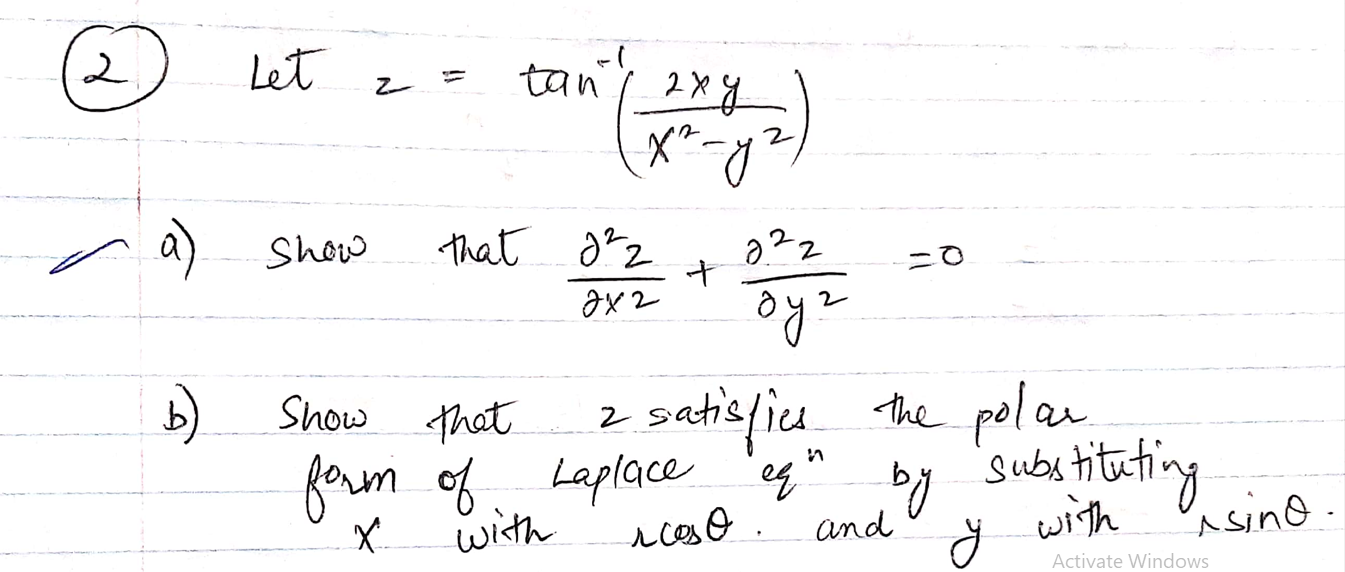 2 Let z = tan⁻¹(2xy / x² - y²)
a) Show that ∂²z/∂x² + ∂²z/∂y² = 0
b) Show that z satisfies the polar
form of Laplace eqⁿ by substituting
x with r cosθ. and y with r sinθ.
Activate Windows